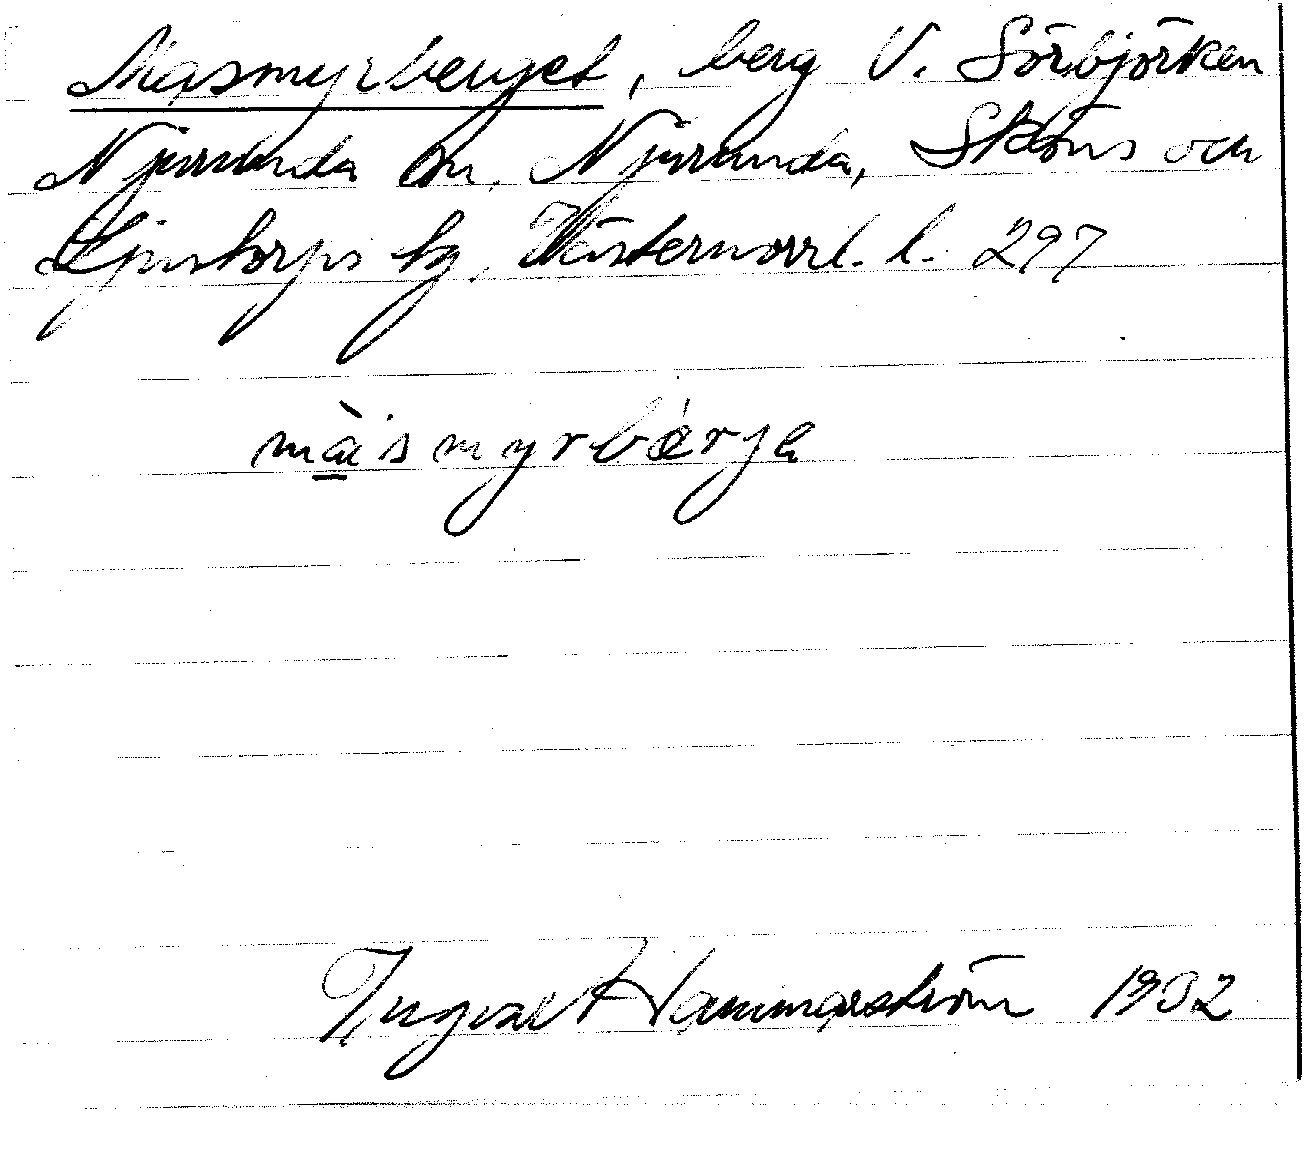 Masmyrberget, berg V. Sörbjörken
Njurunda sn, Njurunda, Sköns och
Ljustorps tg, Västernorrl. l. 297
mà̱smyrbǽrja
Ingvar Hammarström 1932